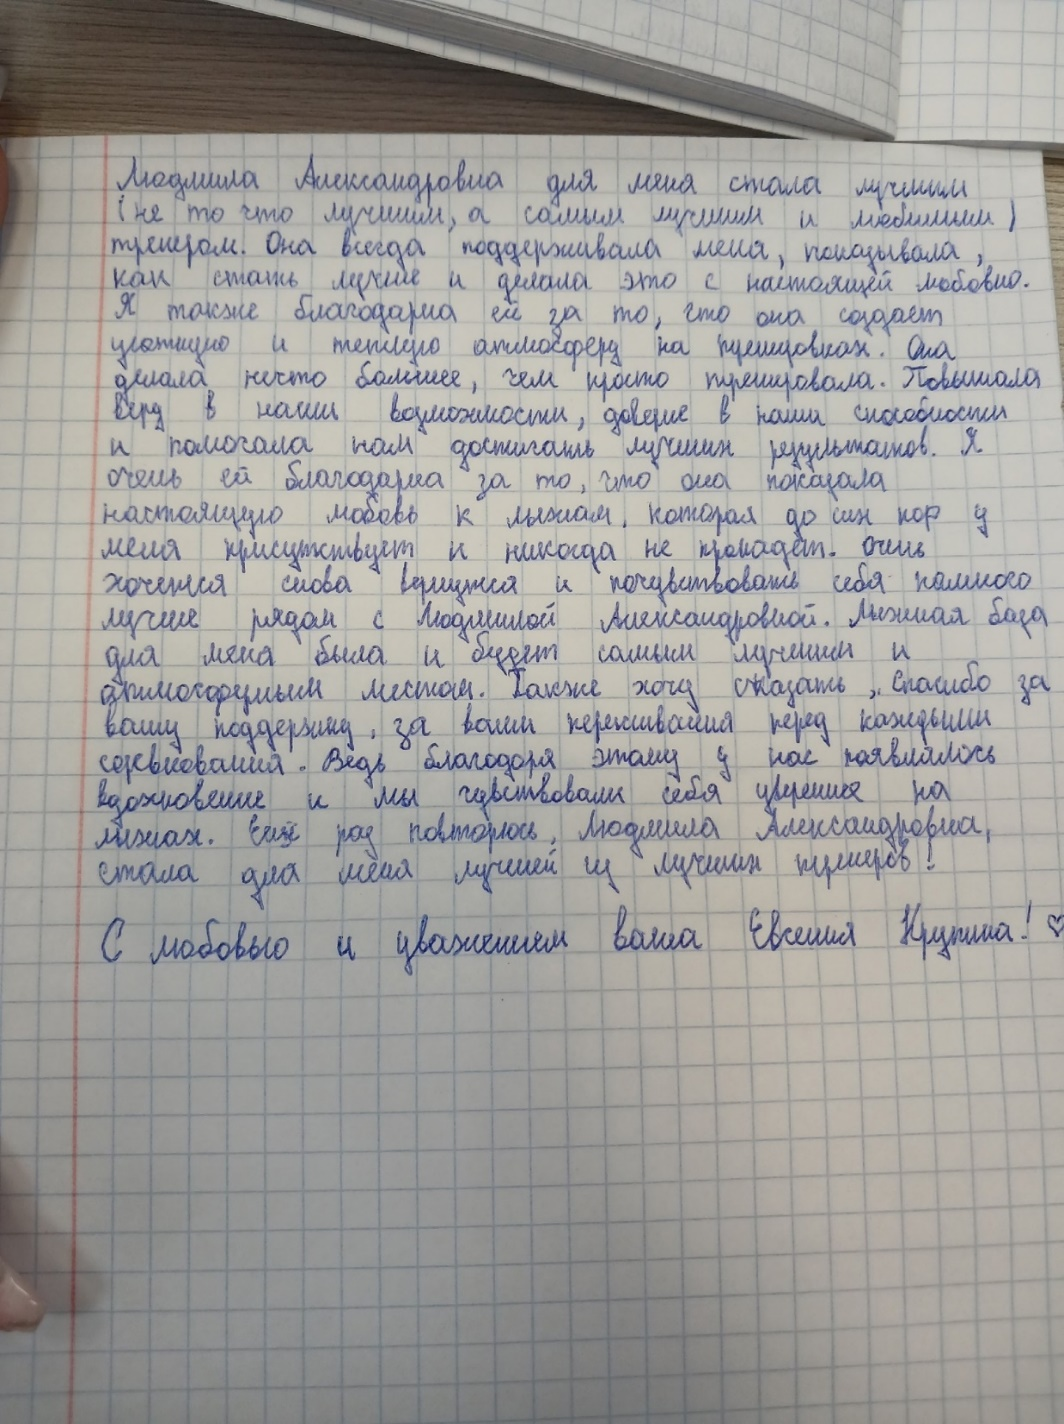 Людмила Александровна для меня стала лучшим
(не то что лучшим, а самым лучшим и любимым)
тренером. Она всегда поддерживала меня, показывала,
как стать лучше и делала это с настоящей любовью.
Я также благодарна ей за то, что она создает
уютную и теплую атмосферу на тренировках. Она
делала нечто большее, чем просто тренировала. Повышала
веру в наши возможности, доверие в наши способности
и помогала нам достигать лучших результатов. Я
очень ей благодарна за то, что она показала
настоящую любовь к лыжам, которая до сих пор у
меня присутствует и никогда не пропадёт. Очень
хочется снова вернутся и почувствовать себя намного
лучше рядом с Людмилой Александровной. Лыжная база
для меня была и будет самым лучшим и
атмосферным местом. Также хочу сказать, спасибо за
вашу поддержку, за ваши переживания перед каждыми
соревнования. Ведь благодаря этому у нас появлялось
вдохновение и мы чувствовали себя уверенее на
лыжах. Ещё раз повторюсь, Людмила Александровна,
стала для меня лучшей из лучших тренеров!
С любовью и уважением ваша Евгения Крупина! ♡